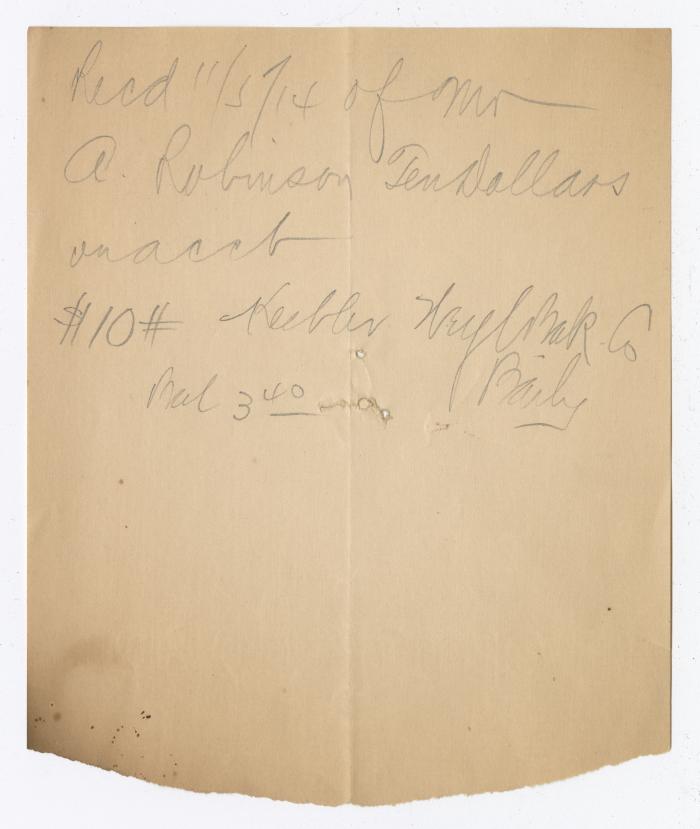 Recd 11/5/14 of Mr
A. Robinson Ten Dollars
on acct
$10# Keebler Weyl Bak. Co
Bal 3 40 Baily